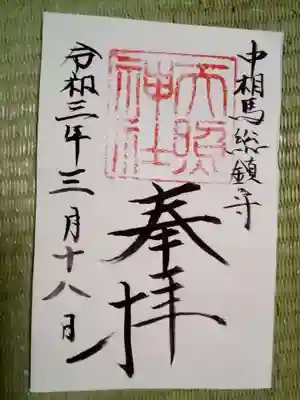 中相馬総鎮守
天照
神社
奉拝
令和三年三月十八日